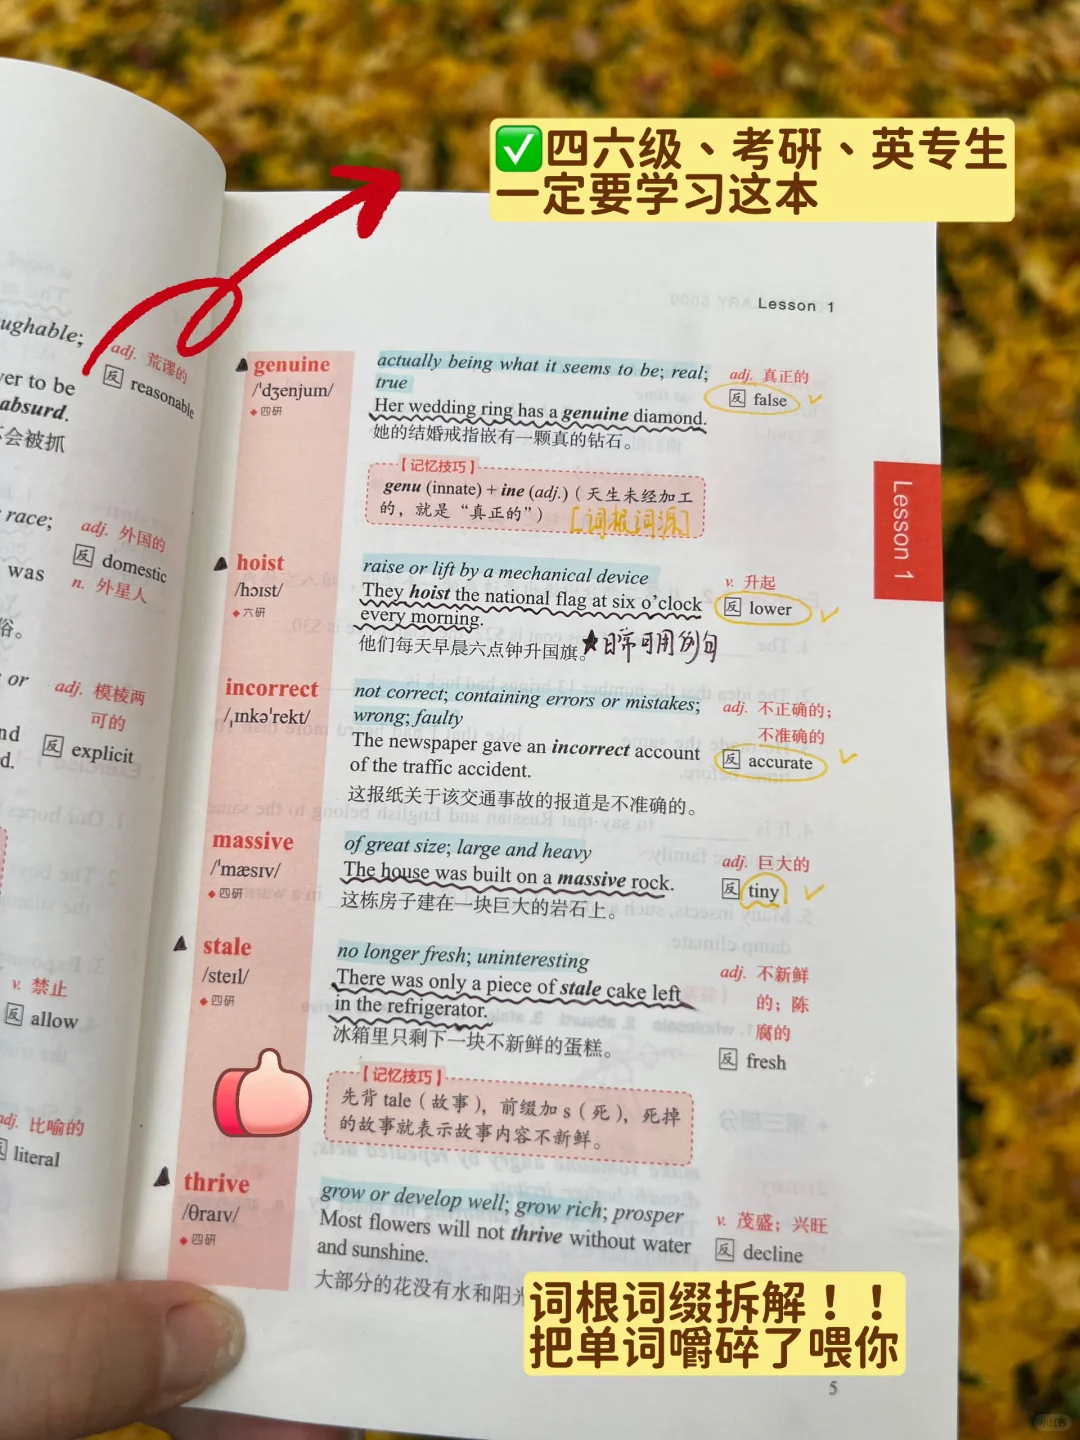 ✅四六级、考研、英专生
一定要学习这本
Lesson 1
ughable;
adj. 荒谬的
反 reasonable
ver to be
absurd.
会被抓
race;
adj. 外国的
反 domestic
was
n. 外星人
俗。
or
adj. 模棱两
可的
nd
反 explicit
d.
v. 禁止
反 allow
adj. 比喻的
反 literal
genuine
/ˈdʒenjuɪn/
◆四研
actually being what it seems to be; real;
true
Her wedding ring has a genuine diamond.
她的结婚戒指嵌有一颗真的钻石。
adj. 真正的
反 false
【记忆技巧】
genu (innate) + ine (adj.)（天生未经加工
的，就是“真正的”）
[词根词源]
Lesson 1
hoist
/hɔɪst/
◆六研
raise or lift by a mechanical device
They hoist the national flag at six o’clock
every morning.
他们每天早晨六点钟升国旗。
★日常可用例句
v. 升起
反 lower
incorrect
/ˌɪnkəˈrekt/
not correct; containing errors or mistakes;
wrong; faulty
The newspaper gave an incorrect account
of the traffic accident.
这报纸关于该交通事故的报道是不准确的。
adj. 不正确的；
不准确的
反 accurate
massive
/ˈmæsɪv/
◆四研
of great size; large and heavy
The house was built on a massive rock.
这栋房子建在一块巨大的岩石上。
adj. 巨大的
反 tiny
stale
/steɪl/
◆四研
no longer fresh; uninteresting
There was only a piece of stale cake left
in the refrigerator.
冰箱里只剩下一块不新鲜的蛋糕。
adj. 不新鲜
的；陈
腐的
反 fresh
【记忆技巧】
先背 tale（故事），前缀加 s（死），死掉
的故事就表示故事内容不新鲜。
thrive
/θraɪv/
◆四研
grow or develop well; grow rich; prosper
Most flowers will not thrive without water
and sunshine.
大部分的花没有水和阳光
v. 茂盛；兴旺
反 decline
词根词缀拆解！！
把单词嚼碎了喂你
5
小红书